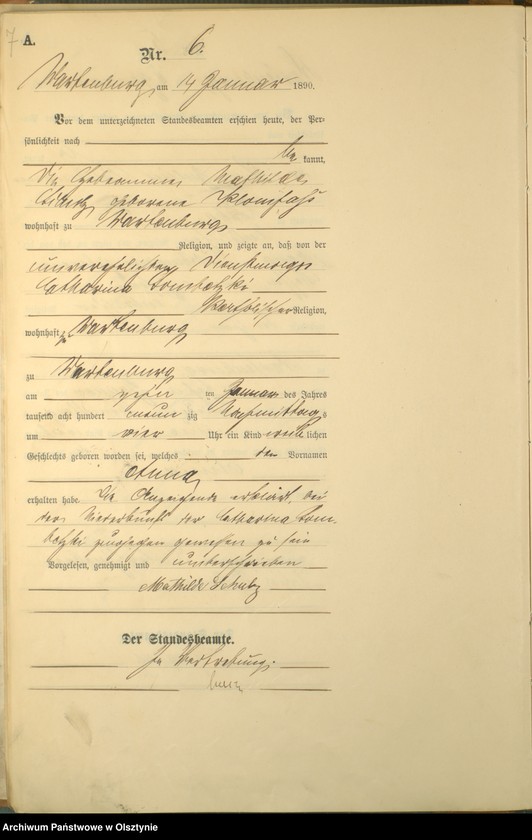 7 A.
Nr. 6.
Wartenburg, am 14 Januar 1890.
Vor dem unterzeichneten Standesbeamten erschien heute, der Per-
sönlichkeit nach
be kannt,
Die Hebeamme Mathilde
geborene
wohnhaft zu Wartenburg
Religion, und zeigte an, daß von der
unverehelichten Dienstmagd
Catharina Dombetzki
katholischer Religion,
wohnhaft zu Wartenburg
zu Wartenburg
am zehn ten Januar des Jahres
tausend acht hundert neun zig Nachmittags
um vier Uhr ein Kind weib lichen
Geschlechts geboren worden sei, welches den Vornamen
Anna
erhalten habe. Die Anzeigende erklärt, bei
der Niederkunft der Catharina Dom-
betzki zugegen gewesen zu sein
Vorgelesen, genehmigt und unterschrieben
Mathilde Schulz
Der Standesbeamte.
In Vertretung.
Archiwum Państwowe w Olsztynie